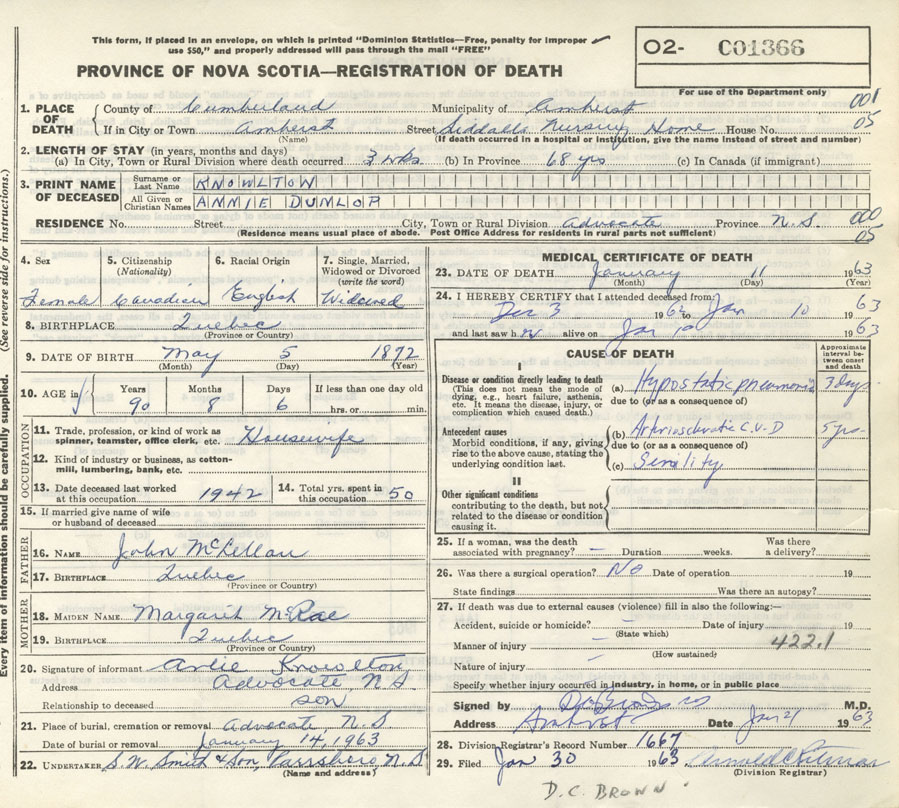 This form, if placed in an envelope, on which is printed "Dominion Statistics—Free, penalty for improper
use $50," and properly addressed will pass through the mail "FREE"
O2- C01366
PROVINCE OF NOVA SCOTIA—REGISTRATION OF DEATH
For use of the Department only
001
05
1. PLACE OF DEATH { County of Cumberland Municipality of Amherst
If in City or Town Amherst Street Siddalls Nursing Home House No.
(Name) (If death occurred in a hospital or institution, give the name instead of street and number)
2. LENGTH OF STAY (in years, months and days)
(a) In City, Town or Rural Division where death occurred 3 wks. (b) In Province 68 yrs (c) In Canada (if immigrant)
3. PRINT NAME OF DECEASED { Surname or Last Name KNOWLTON
All Given or Christian Names ANNIE DUNLOP
RESIDENCE No. Street City, Town or Rural Division Advocate Province N.S. 000
05
(Residence means usual place of abode. Post Office Address for residents in rural parts not sufficient)
(See reverse side for instructions.)
Every item of information should be carefully supplied.
4. Sex Female
5. Citizenship (Nationality) Canadian
6. Racial Origin English
7. Single, Married, Widowed or Divorced (write the word) Widowed
8. BIRTHPLACE Quebec
(Province or Country)
9. DATE OF BIRTH May 5 1872
(Month) (Day) (Year)
10. AGE in Years 90 Months 8 Days 6 If less than one day old hrs. or min.
OCCUPATION
11. Trade, profession, or kind of work as spinner, teamster, office clerk, etc. Housewife
12. Kind of industry or business, as cotton-mill, lumbering, bank, etc.
13. Date deceased last worked at this occupation 1942
14. Total yrs. spent in this occupation 50
15. If married give name of wife or husband of deceased
FATHER
16. NAME John McLellan
17. BIRTHPLACE Quebec
(Province or Country)
MOTHER
18. MAIDEN NAME Margaret McRae
19. BIRTHPLACE Quebec
(Province or Country)
20. Signature of informant Arlie Knowlton
Address Advocate, N.S.
Relationship to deceased son
21. Place of burial, cremation or removal Advocate N.S
Date of burial or removal January 14, 1963
22. UNDERTAKER S.W. Smith & Son, Parrsboro, N.S
(Name and address)
MEDICAL CERTIFICATE OF DEATH
23. DATE OF DEATH January 11 1963
(Month) (Day) (Year)
24. I HEREBY CERTIFY that I attended deceased from:
Dec 3 1962 to Jan 10 1963
and last saw h er alive on Jan 10 1963
CAUSE OF DEATH
Approximate interval between onset and death
I
Disease or condition directly leading to death
(This does not mean the mode of dying, e.g., heart failure, asthenia, etc. It means the disease, injury, or complication which caused death.)
(a) Hypostatic pneumonia 3 days
due to (or as a consequence of)
Antecedent causes
Morbid conditions, if any, giving rise to the above cause, stating the underlying condition last.
(b) Arteriosclerotic C.V.D 5 yrs
due to (or as a consequence of)
(c) Senility
II
Other significant conditions
contributing to the death, but not related to the disease or condition causing it.
25. If a woman, was the death associated with pregnancy? — Duration weeks. Was there a delivery?
26. Was there a surgical operation? No Date of operation 19
State findings Was there an autopsy?
27. If death was due to external causes (violence) fill in also the following:—
Accident, suicide or homicide? — Date of injury 19
(State which)
Manner of injury — 422.1
(How sustained)
Nature of injury —
Specify whether injury occurred in industry, in home, or in public place
Signed by M.D.
Address Amherst Date Jan 21 1963
28. Division Registrar's Record Number 1667
29. Filed Jan 30 1963
(Division Registrar)
D.C. BROWN